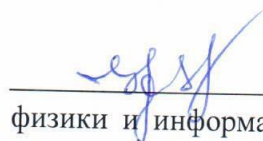 физики и информа